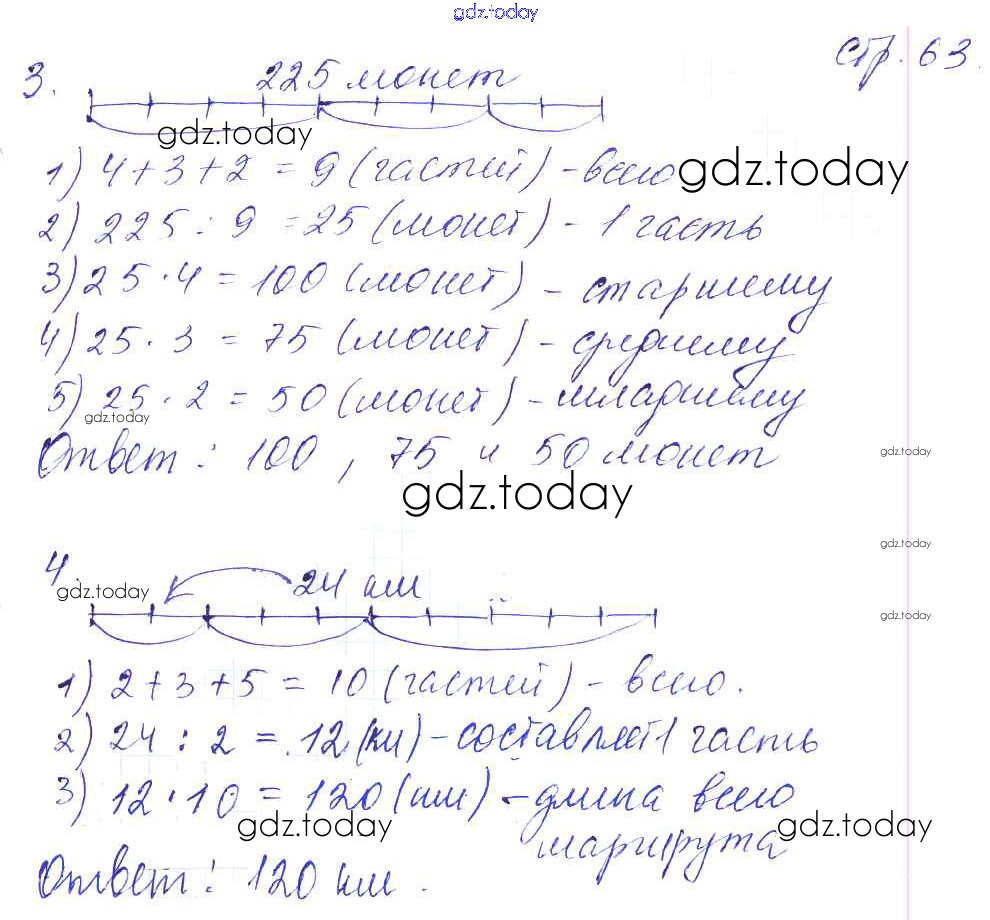 gdz.today
стр. 63.
3.
225 монет
gdz.today
1) 4+3+2 = 9 (частей) - всего
gdz.today
2) 225 : 9 = 25 (монет) - 1 часть
3) 25 · 4 = 100 (монет) - старшему
4) 25 · 3 = 75 (монет) - среднему
5) 25 · 2 = 50 (монет) - младшему
gdz.today
Ответ: 100, 75 и 50 монет
gdz.today
gdz.today
gdz.today
4.
gdz.today
24 км
gdz.today
1) 2+3+5 = 10 (частей) - всего.
2) 24 : 2 = 12 (км) - составляет 1 часть
3) 12 · 10 = 120 (км) - длина всего
маршрута
gdz.today
gdz.today
Ответ: 120 км.